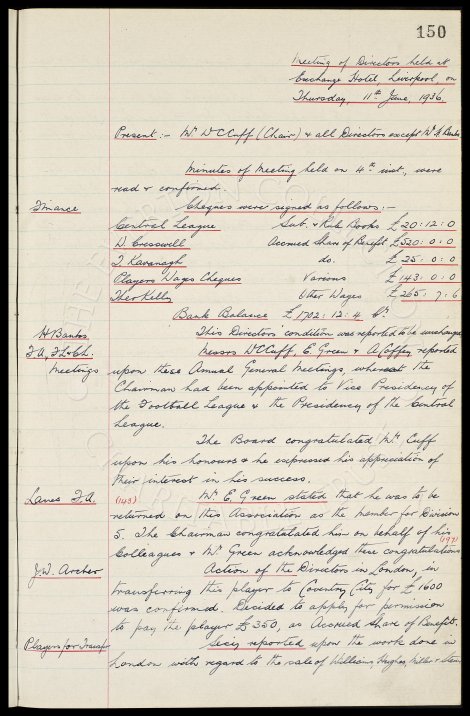 150
Meeting of Directors held at
Exchange Hotel, Liverpool, on
Thursday, 11th June, 1936.
Present :- Mr W C Cuff (Chair) & all Directors except Mr H Banks
Minutes of Meeting held on 4th inst, were
read & confirmed.
Finance
Cheques were signed as follows :-
Central League Sub. & Rule Books £20:12:0
W Cresswell Accrued Share of Benefit £520:0:0
J. Kavanagh do. £25:0:0
Players Wages Cheques Various £143:0:0
Theo Kelly Other Wages £265:7:6
Bank Balance £1702:12:4 Cr
H Banks
This Directors' condition was reported to be unchanged
F.A., F.L. & C.L. Meetings
Messrs W C Cuff, E. Green & A Coffey reported
upon these Annual General Meetings, whereat the
Chairman had been appointed to Vice Presidency of
the Football League & the Presidency of the Central
League.
The Board congratulated Mr. Cuff
upon his honours & he expressed his appreciation of
their interest in his success.
Lancs F.A. (143)
Mr. E. Green stated that he was to be
returned on this Association as the member for Division
5. The Chairman congratulated him on behalf of his
Colleagues & Mr. Green acknowledged these congratulations
J.W. Archer
Action of the Directors in London, in
transferring this player to Coventry City for £1600
was confirmed. Decided to apply for permission
to pay the player £350, as Accrued Share of Benefit.
Players for Transfer
Secy reported upon the work done in
London with regard to the sale of Williams, Hughes, Miller &